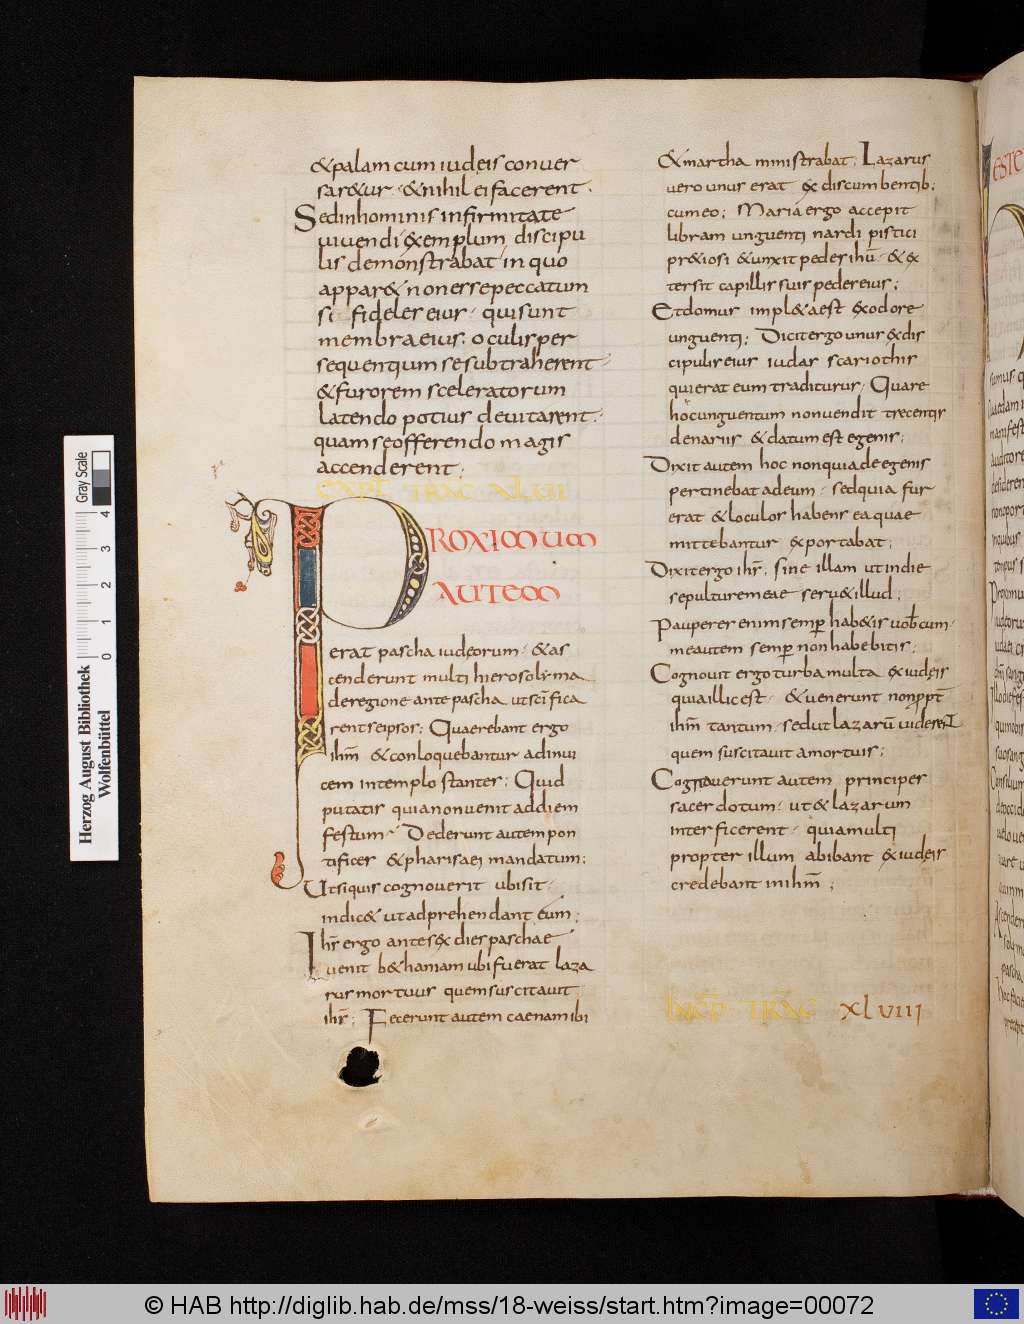 &palam cum iudeis conuer
sar&ur · & nihil ei facerent ·
Sed in hominis infirmitate
uiuendi exemplum discipu
lis demonstrabat · in quo
appar& non esse peccatum
si fideles eius · qui sunt
membra eius · oculis per
sequentium se subtraherent ·
& furorem sceleratorum
latendo potius deuitarent ·
quam se offerendo magis
accenderent ;
EXPL TRAC XLVII
PROXIMUM
AUTEM
erat pascha iudeorum · & as
cenderunt multi hierosolyma
de regione ante pascha ut sc̄ifica
rent se ipsos ; Quaerebant ergo
ihm̄ & conloquebantur ad inui
cem in templo stantes ; Quid
putatis quia non uenit ad diem
festum · Dederunt autem pon
tifices & pharisaei mandatum ;
Ut si quis cognouerit ubi sit ·
indic& ut adprehendant eum ;
Ihs̄ ergo ante sex dies paschae
uenit b&haniam ubi fuerat laza
rus mortuus quem suscitauit
ihs̄ ; Fecerunt autem caenam ibi
& martha ministrabat ; Lazarus
uero unus erat ex discumbentib;
cum eo ; Maria ergo accepit
libram unguenti nardi pistici
pr&iosi & unxit pedes ihū · & ex
tersit capillis suis pedes eius ;
Et domus impl&a est ex odore
unguenti ; Dicit ergo unus ex dis
cipulis eius iudas scariothis
qui erat eum traditurus · Quare
hoc unguentum non uendit trecentis
denariis & datum est egenis ;
Dixit autem hoc non quia de egenis
pertinebat ad eum · sed quia fur
erat & loculos habens ea quae
mittebantur exportabat ;
Dixit ergo ihs̄ ; sine illam ut in die
sepulturę meae seru& illud ;
Pauperes enim semp̄ hab&is uobcum ·
me autem semp̄ non habebitis ;
Cognouit ergo turba multa ex iudeis
quia illic est · & uenerunt non pp̄t
ihm̄ tantum · sed ut lazarū uiderent
quem suscitauit a mortuis ;
Cognouerunt autem principes
sacerdotum · ut & lazarum
interficerent · quia multi
propter illum abibant ex iudeis
& credebant in ihm̄ ;
INCP̄ TRAC XLVIII
Herzog August Bibliothek
Wolfenbüttel
Gray Scale
0 1 2 3 4
© HAB http://diglib.hab.de/mss/18-weiss/start.htm?image=00072